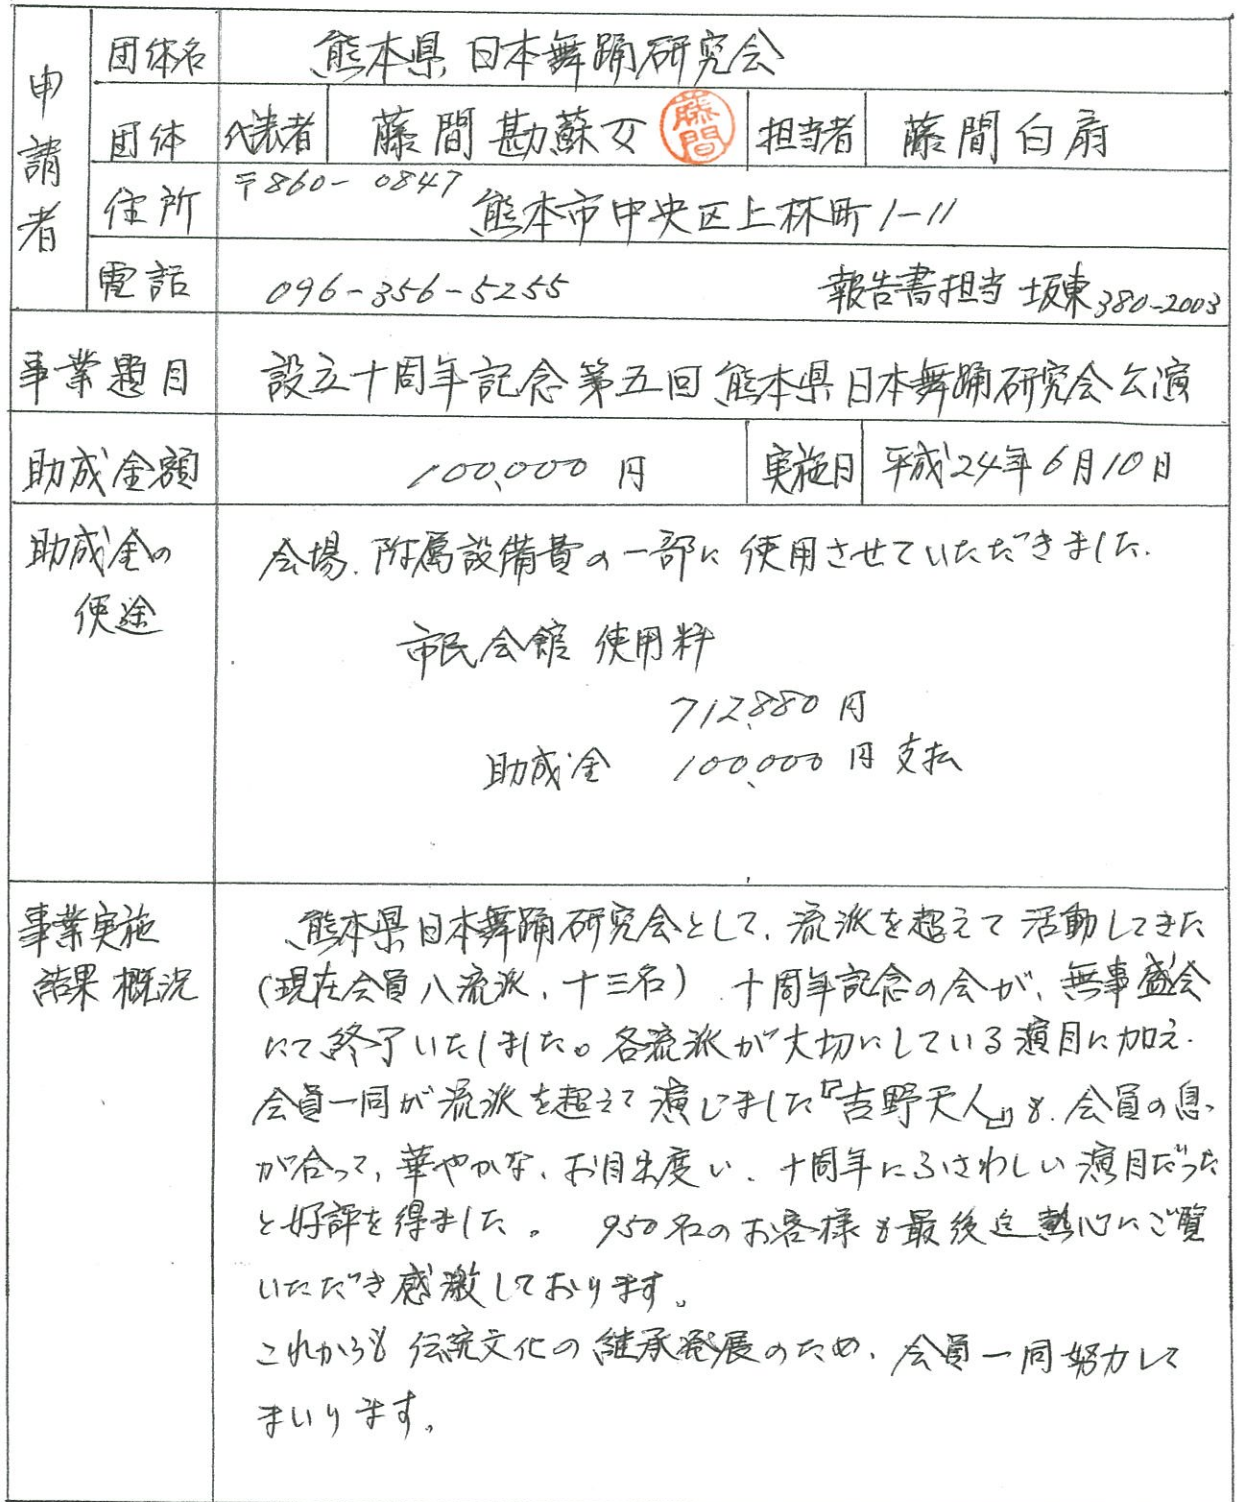 申請者
団体名 熊本県日本舞踊研究会
団体 代表者 藤間勘蘇女 藤間 担当者 藤間白扇
住所 〒860-0847 熊本市中央区上林町1-11
電話 096-356-5255 報告書担当 坂東380-2003
事業題目 設立十周年記念第五回熊本県日本舞踊研究会公演
助成金額 100,000円 実施日 平成24年6月10日
助成金の
使途
会場、附属設備費の一部に使用させていただきました。
市民会館 使用料
712,880円
助成金 100,000円支払
事業実施
結果概況
熊本県日本舞踊研究会として、流派を超えて活動してきた
(現在会員八流派、十三名)、十周年記念の会が、無事盛会
にて、終了いたしました。各流派が大切にしている演目に加え、
会員一同が流派を超えて演じました『吉野天人』も、会員の息
が合って、華やかな、お目出度い、十周年にふさわしい演目だった
と好評を得ました。 950名のお客様も最後迄熱心にご覧
いただき感激しております。
これからも伝統文化の継承発展のため、会員一同努力して
まいります。